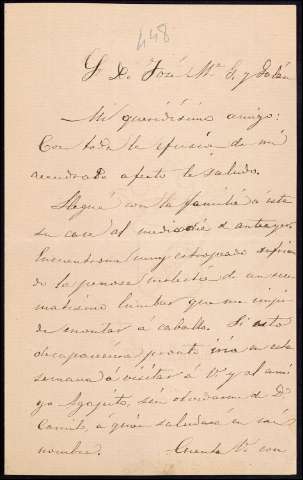 448
Sr. Dn. José Ma. G. y Galán
Mi queridísimo amigo:
Con toda la efusión de mi
acendrado afecto le saludo.
Llegué con la familia á esta
su casa al mediodia d anteayer.
Encuentrome muy estropeado sufrien
do la penosa molestia de un reu-
matismo lumbar que me impi-
de montar a caballo. Si esto
desapareciera pronto iria en esta
semana á visitar á V. y al ami-
go Agapito, sin olvidarme de Dn.
Camilo, á quien saludará en mi
nombre. Cuente V. con